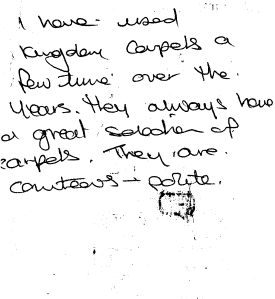 I have used
Kingdom Carpets a
few time over the
Years. they always have
a great selection of
carpets. They are
courteous - polite.